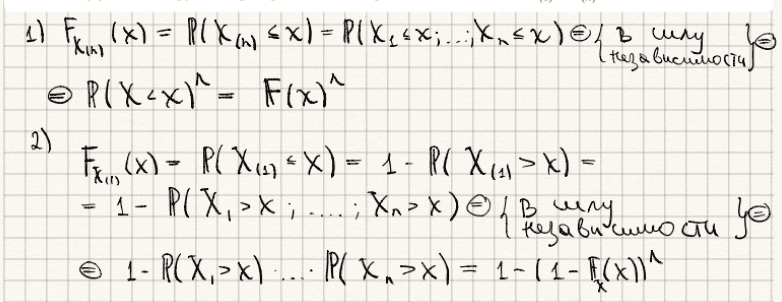 1) F_{X_{(n)}}(x) = P(X_{(n)} ≤ x) = P(X_1 ≤ x; ...; X_n ≤ x) ⊜ { в силу независимости } ⊜
⊜ P(X < x)^n = F(x)^n
2)
F_{X_{(1)}}(x) = P(X_{(1)} ≤ x) = 1 - P(X_{(1)} > x) =
= 1 - P(X_1 > x; ....; X_n > x) ⊜ { в силу независимости } ⊜
⊜ 1 - P(X_1 > x) · ... · P(X_n > x) = 1 - (1 - F_X(x))^n